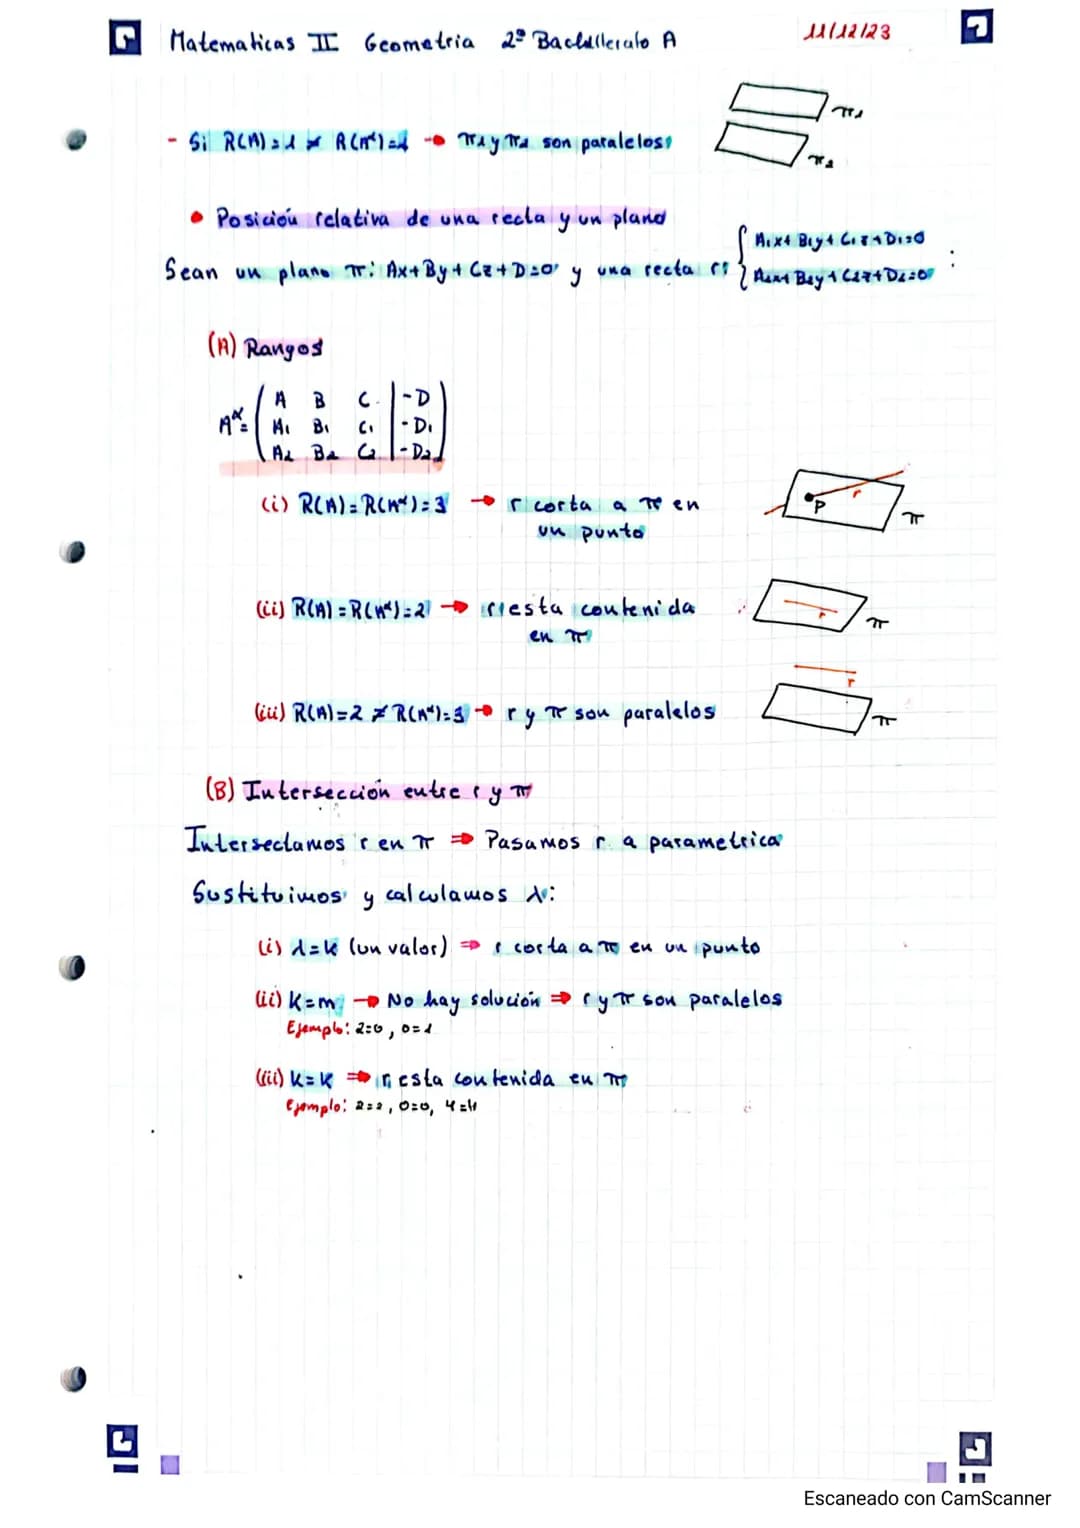 Matematicas II Geometria 2º Bachillerato A
11/12/23
- Si R(A)=1 ≠ R(A*)=2 → π1 y π2 son paralelos
π1
π2
• Posición relativa de una recta y un plano
Sean un plano π: Ax+By+Cz+D=0 y una recta r: { A1x+B1y+C1z+D1=0
A2x+B2y+C2z+D2=0 :
(A) Rangos
A* = ( A B C | -D
A1 B1 C1 | -D1
A2 B2 C2 | -D2 )
(i) R(A)=R(A*)=3 → r corta a π en
un punto
P r π
(ii) R(A)=R(A*)=2 → r esta contenida
en π
r π
(iii) R(A)=2 ≠ R(A*)=3 → r y π son paralelos
r
π
(B) Intersección entre r y π
Intersectamos r en π ⇒ Pasamos r a parametrica
Sustituimos y calculamos λ:
(i) λ=k (un valor) ⇒ r corta a π en un punto
(ii) K=m → No hay solución ⇒ r y π son paralelos
Ejemplo: 2=0, 0=1
(iii) K=K ⇒ r esta contenida en π
Ejemplo: 2=2, 0=0, 4=4
Escaneado con CamScanner